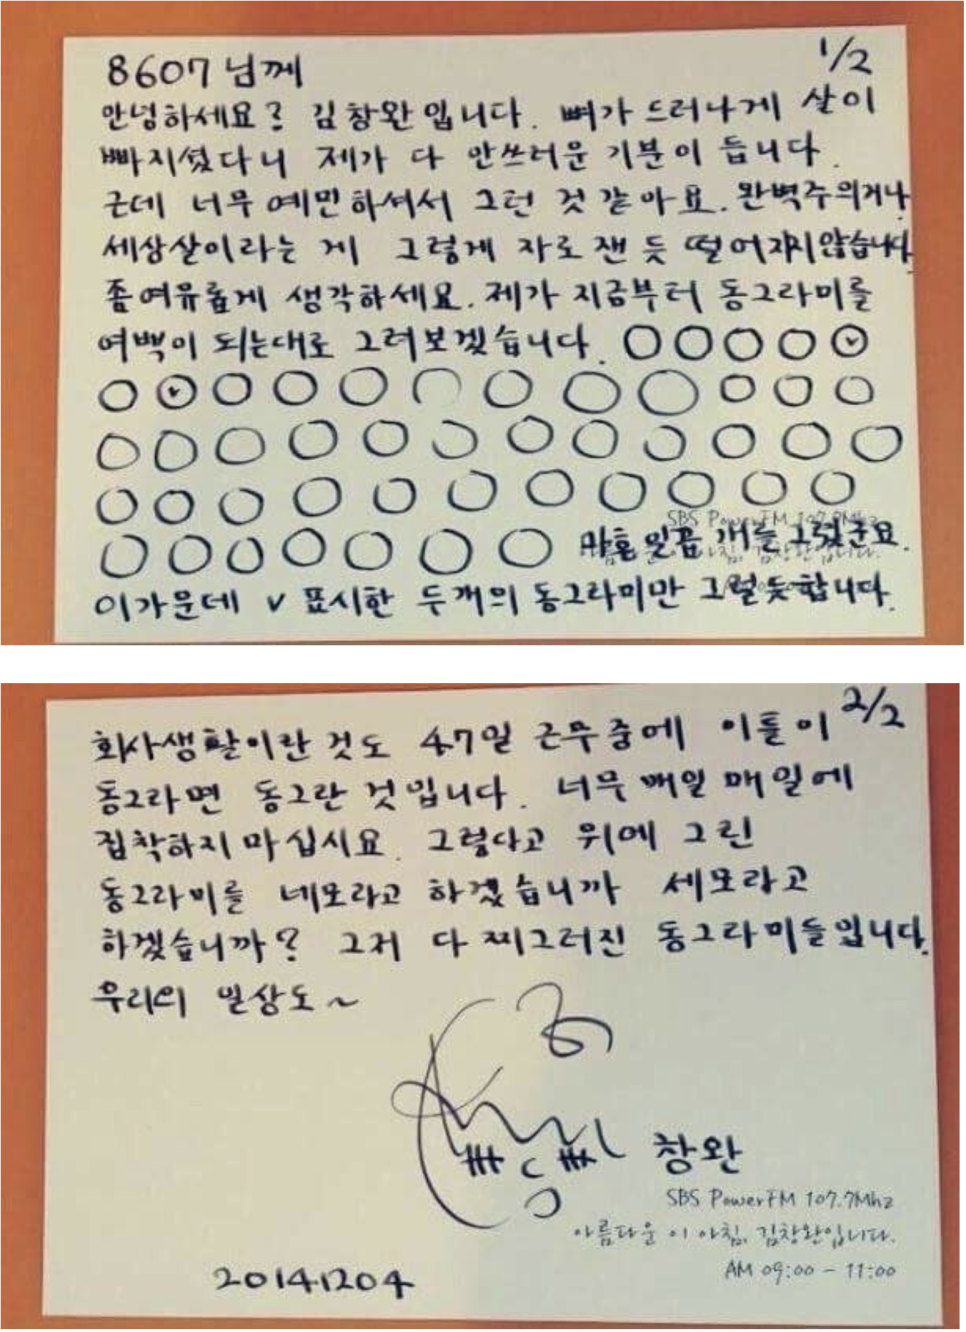 1/2
8607님께
안녕하세요? 김창완입니다. 뼈가 드러나게 살이
빠지셨다니 제가 다 안쓰러운 기분이 듭니다.
근데 너무 예민하셔서 그런 것 같아요. 완벽주의거나
세상살이라는 게 그렇게 자로 잰 듯 떨어지지 않습니다.
좀 여유롭게 생각하세요. 제가 지금부터 동그라미를
여백이 되는대로 그려보겠습니다.
SBS PowerFM 107.7Mhz
마흔일곱 개를 그렸군요.
이 가운데 v 표시한 두개의 동그라미만 그럴듯합니다.
2/2
회사생활이란 것도 47일 근무중에 이틀이
동그라면 동그란 것입니다. 너무 매일 매일에
집착하지 마십시요. 그렇다고 위에 그린
동그라미를 네모라고 하겠습니까 세모라고
하겠습니까? 그저 다 찌그러진 동그라미들입니다.
우리의 일상도~
창완
SBS PowerFM 107.7Mhz
아름다운 이 아침, 김창완입니다.
AM 09:00 - 11:00
20141204